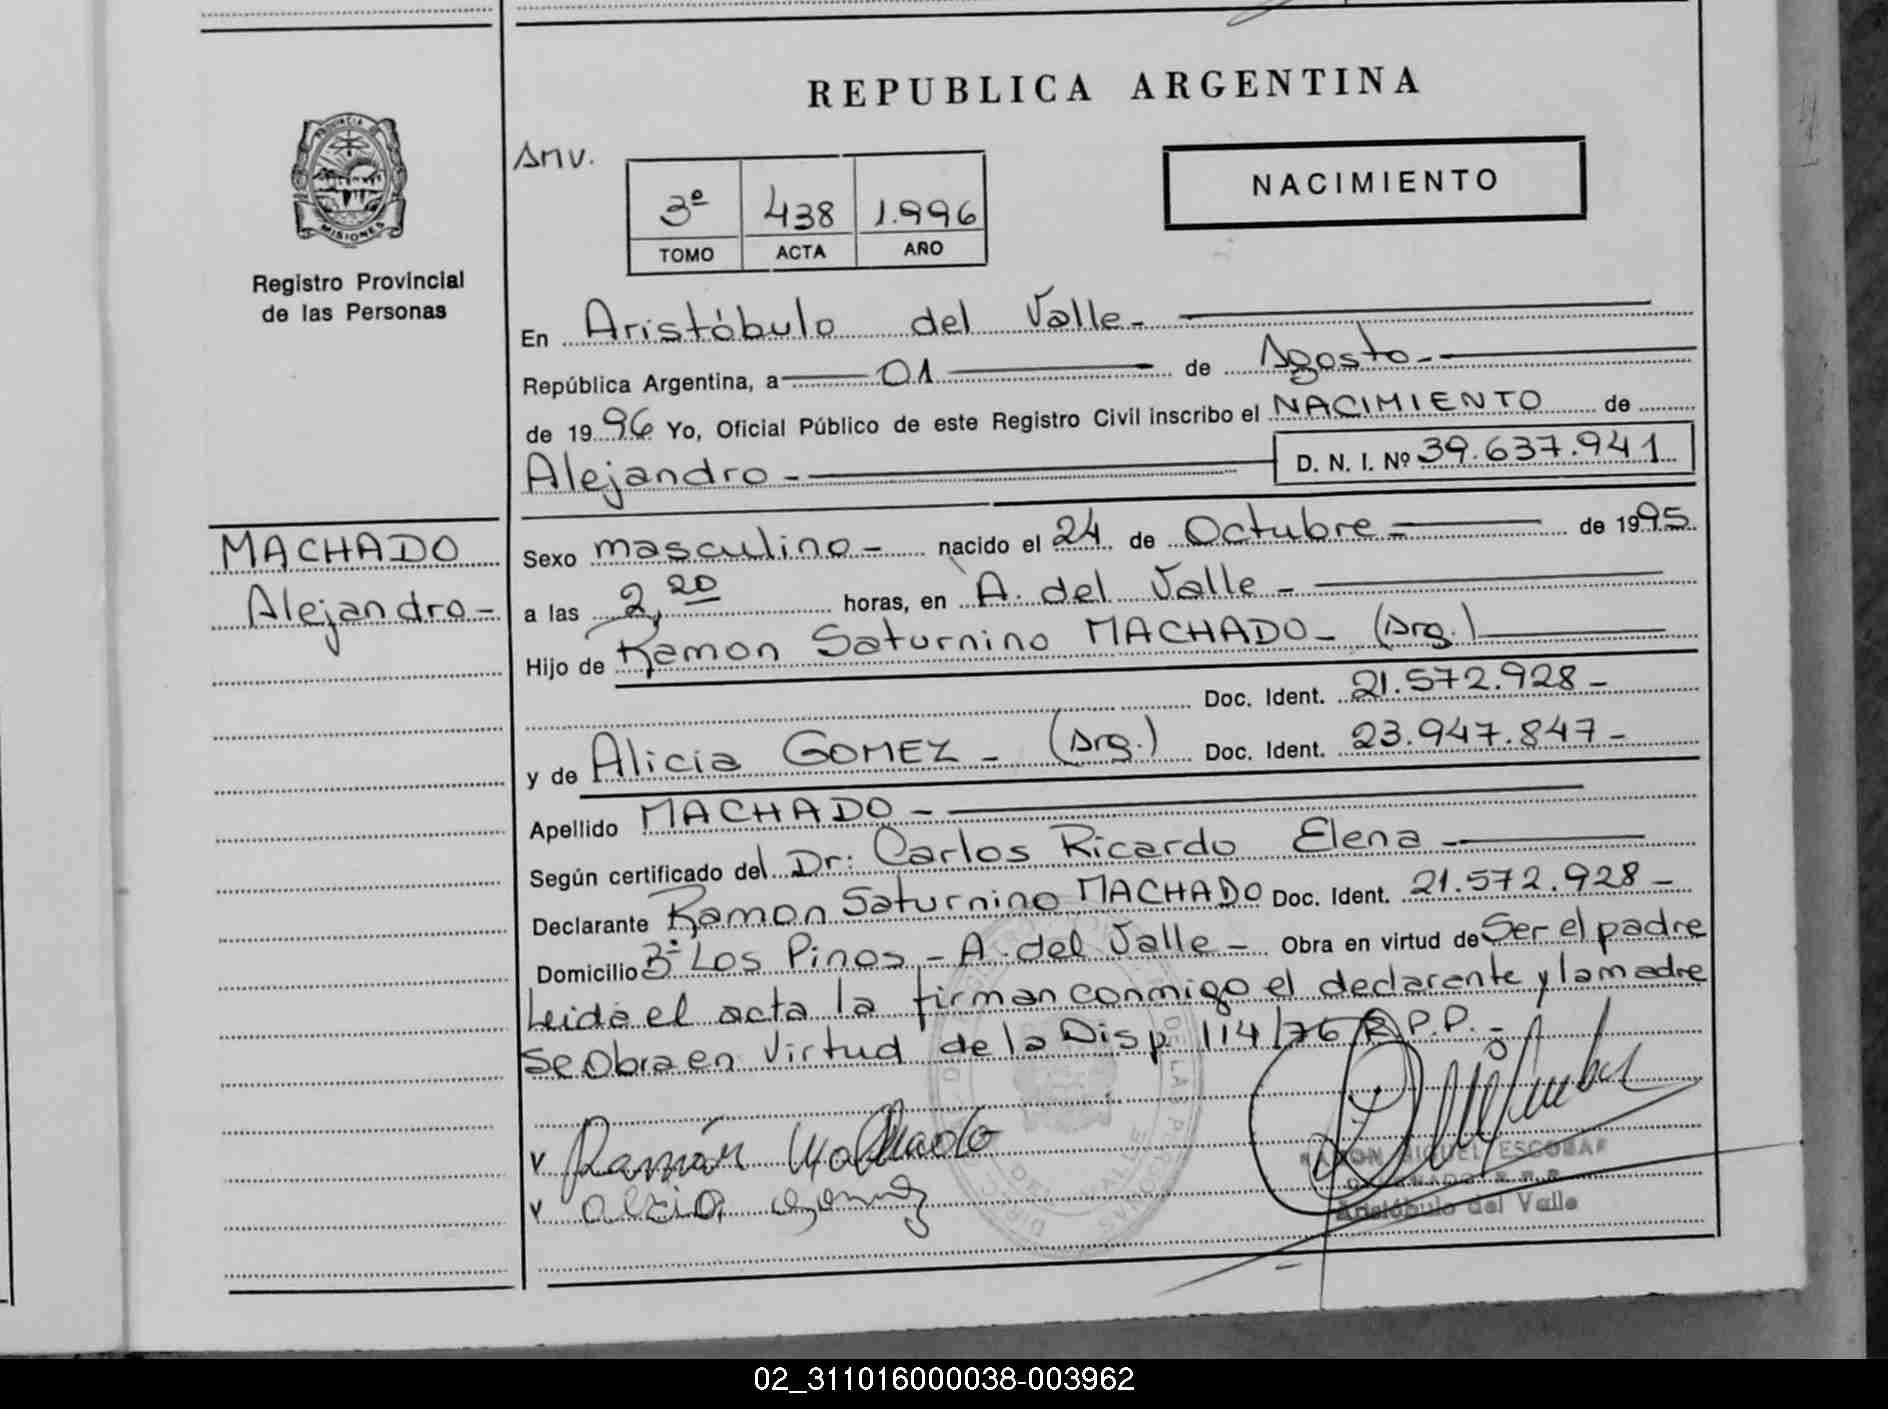 REPUBLICA ARGENTINA
Anv.
NACIMIENTO
3º 438 1.996
TOMO ACTA AÑO
PROVINCIA DE
MISIONES
Registro Provincial
de las Personas
En Aristóbulo del Valle-
República Argentina, a 01 de Agosto-
de 1996 Yo, Oficial Público de este Registro Civil inscribo el NACIMIENTO de
Alejandro - D. N. I. Nº 39.637.941
MACHADO
Alejandro-
Sexo masculino- nacido el 24 de Octubre- de 1995
a las 2,20 horas, en A. del Valle-
Hijo de Ramon Saturnino MACHADO- (Arg.)
Doc. Ident. 21.572.928-
y de Alicia GOMEZ- (Arg.) Doc. Ident. 23.947.847-
Apellido MACHADO-
Según certificado del Dr: Carlos Ricardo Elena
Declarante Ramon Saturnino MACHADO Doc. Ident. 21.572.928-
Domicilio 3º Los Pinos - A. del Valle- Obra en virtud de Ser el padre
Leida el acta la firman conmigo el declarante y la madre
se Obra en virtud de la Disp 114/76 R.P.P.-
v Ramón Machado
v Alicia Gomez
RAMON MIGUEL ESCOBAR
DELEGADO R.P.P.
Aristóbulo del Valle
02_311016000038-003962